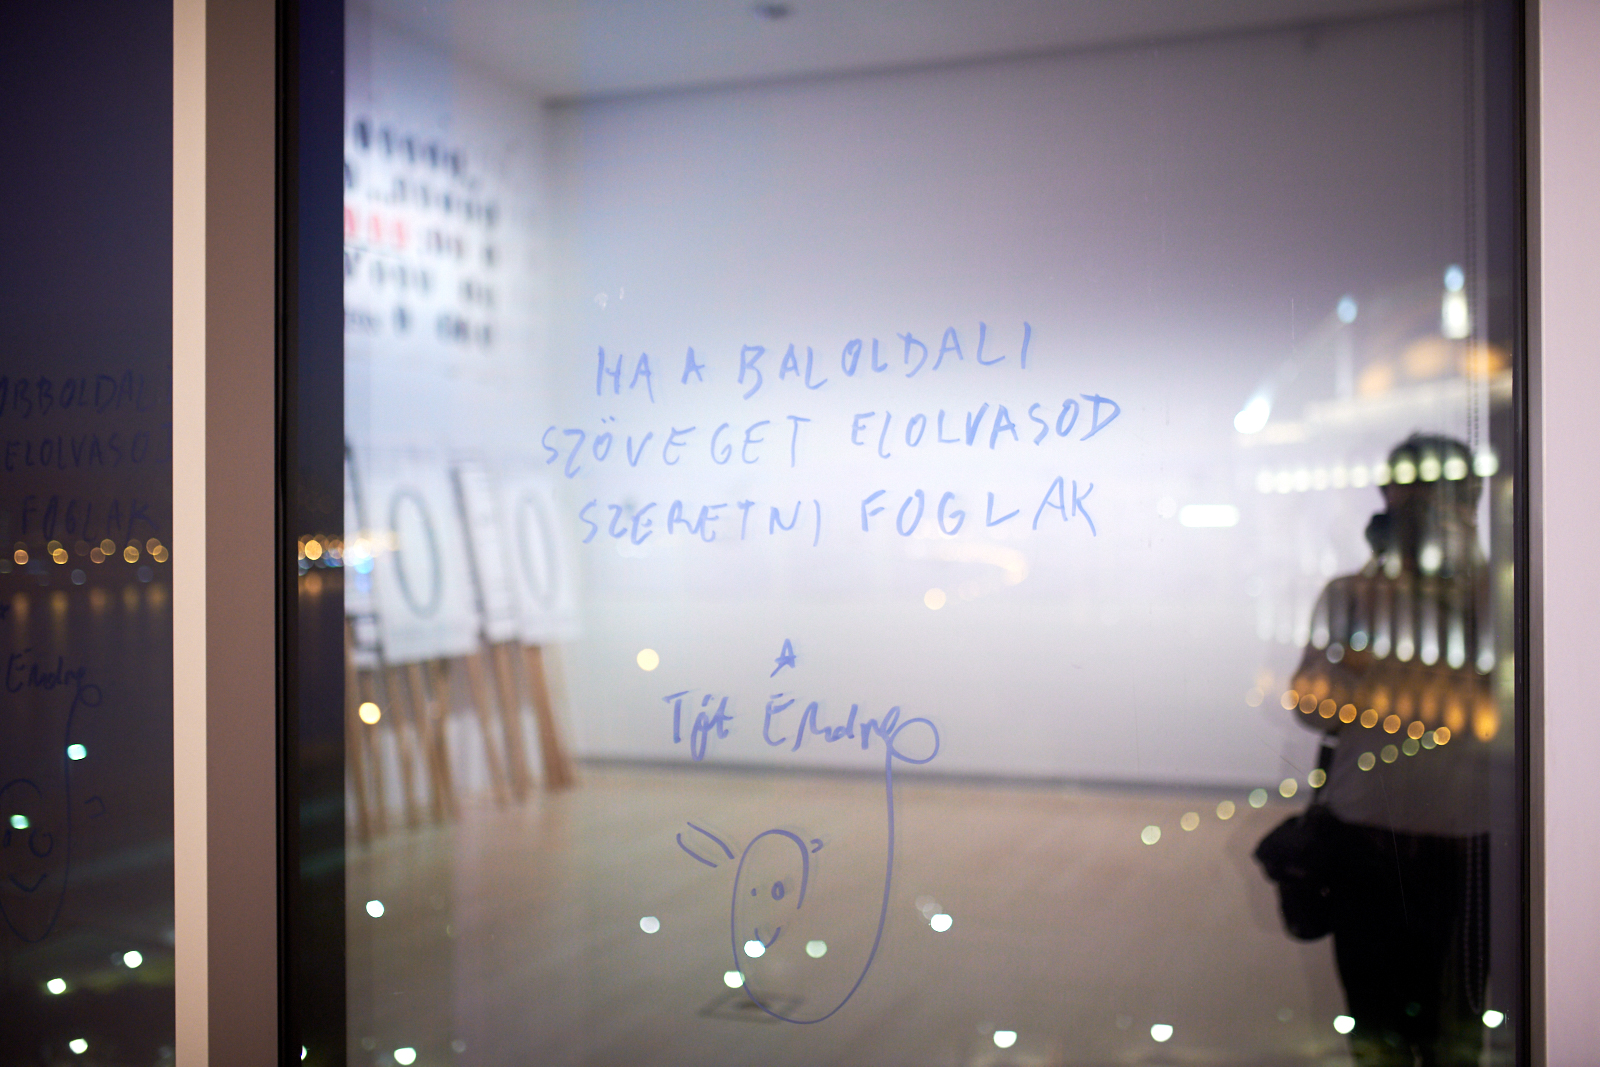 HA A BALOLDALI
SZÖVEGET ELOLVASOD
SZERETNI FOGLAK
A
Tót Endre
OBBOLDAL
ELOLVASO
FOGLAK
Endre